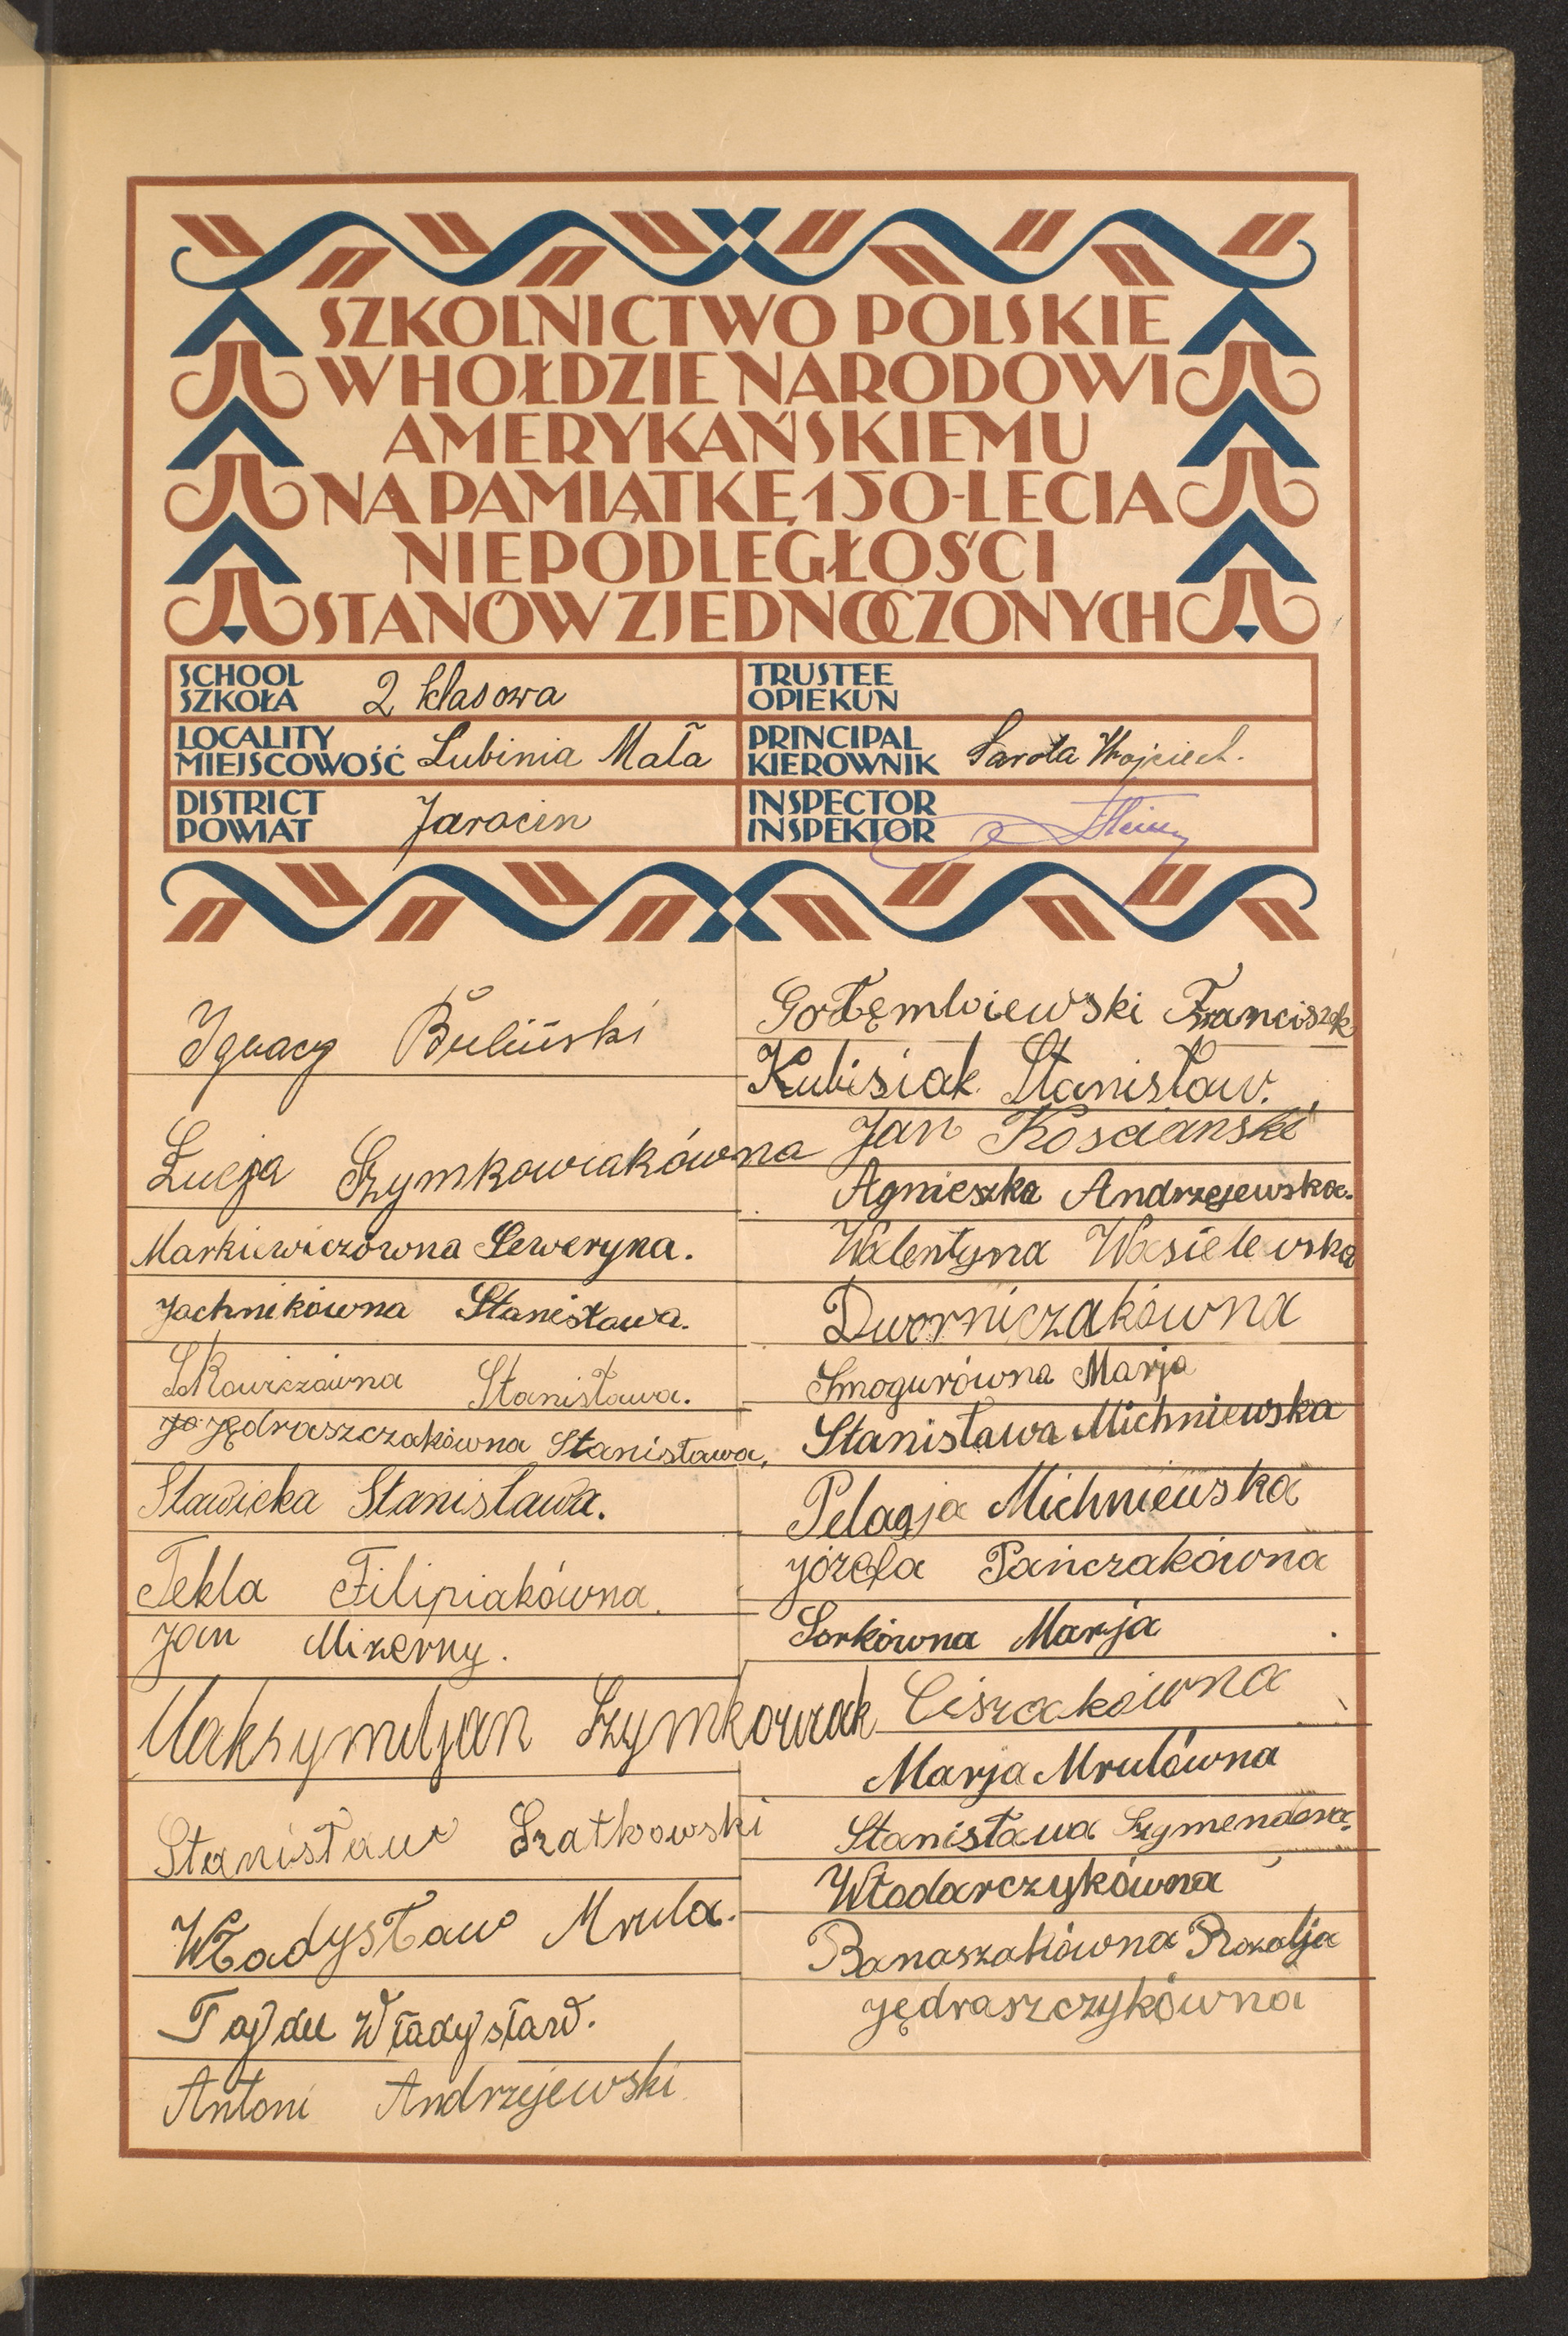 SZKOLNICTWO POLSKIE
W HOŁDZIE NARODOWI
AMERYKAŃSKIEMU
NA PAMIĄTKĘ 150-LECIA
NIEPODLEGŁOŚCI
STANÓW ZJEDNOCZONYCH
SCHOOL
SZKOŁA 2 klasowa
TRUSTEE
OPIEKUN
LOCALITY
MIEJSCOWOŚĆ Lubinia Mała
PRINCIPAL
KIEROWNIK Sarota Wojciech.
DISTRICT
POWIAT Jarocin
INSPECTOR
INSPEKTOR
Ignacy Buliński
Łucja Szymkowiakówna
Markiewiczówna Seweryna.
Jachnikówna Stanisława.
Skowiczówna Stanisława.
Jędraszczakówna Stanisława.
Sławicka Stanisława.
Tekla Filipiakówna.
Jan Mizerny.
Maksymiljan Szymkowiak
Stanisław Szatkowski
Władysław Mrula.
Władysław.
Antoni Andrzejewski
Gołęmbiewski Franciszek
Kubisiak Stanisław.
Jan Kościański
Agnieszka Andrzejewska.
Walentyna Wasielewska
Dworniczakówna
Smogurówna Marja
Stanisława Michniewska
Pelagja Michniewska
Józefa Pańczakówna
Sorkówna Marja
Ciszakówna
Marja Mrulówna
Stanisława
Włodarczykówna
Banaszakówna Rozalja
Jędraszczykówna